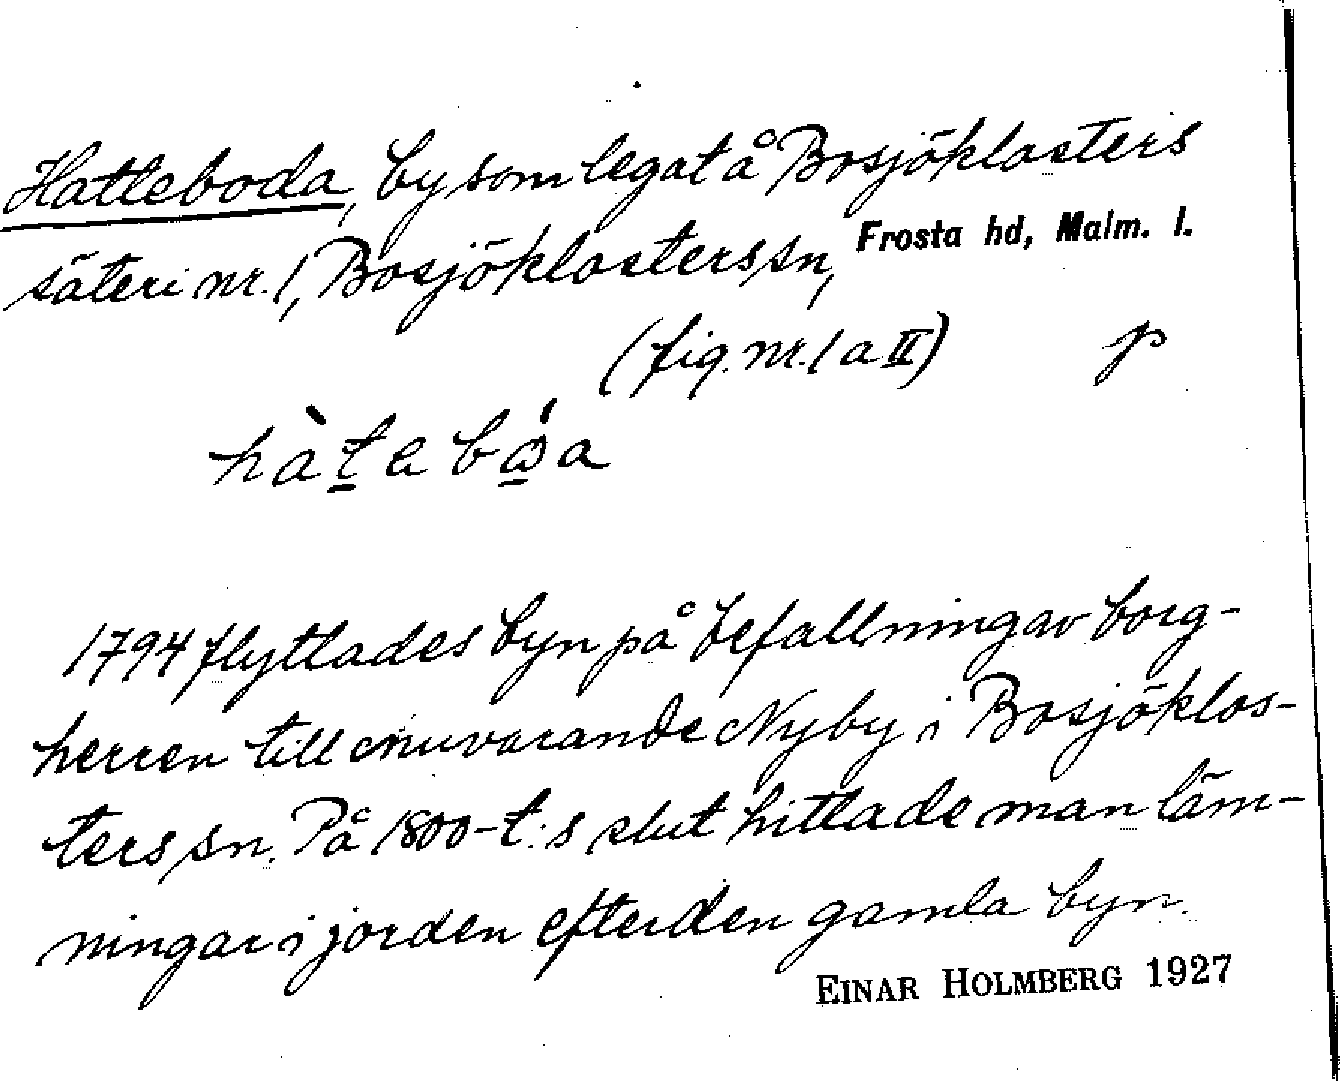 Hatteboda, by som legat å Bosjöklosters
säteri nr. 1, Bosjöklosters sn, Frosta hd, Malm. l.
(fig. nr. 1 a II) p
1794 flyttades byn på befallning av borg-
herren till nuvarande Nyby i Bosjöklos-
ters sn. På 1800-t:s slut hittade man läm-
ningar i jorden efter den gamla byn.
EINAR HOLMBERG 1927